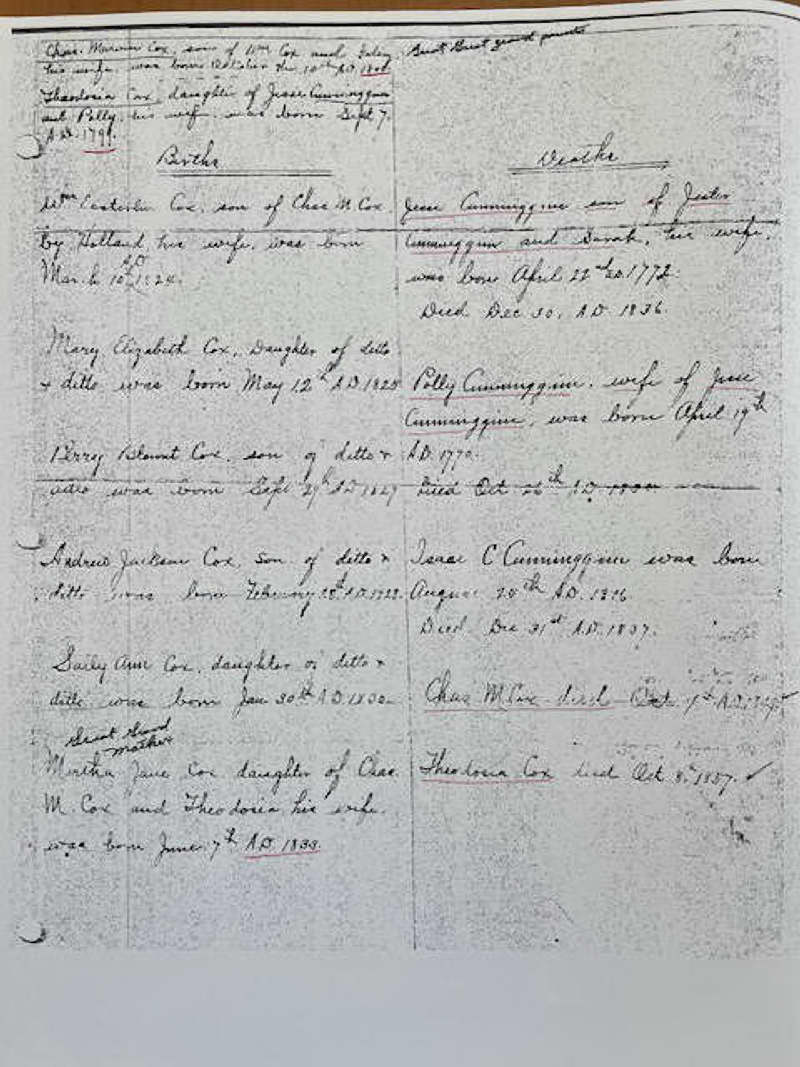 Chas. Marion Cox, son of Wm Cox and
his wife, was born October the 10th A.D.
Great Great grand parents
Theodosia Cox, daughter of Jesse Cunninggim
and Polly, his wife, was born Sept 7,
A.D. 1799.
Births
Wm Easterlin Cox, son of Chas M Cox
by Holland, his wife, was born
March 10th A.D. 1824.
Mary Elizabeth Cox, Daughter of ditto
+ ditto was born May 12th A.D. 1825
Perry Blount Cox, son of ditto +
ditto was born Sept 29th A.D. 1827
Andrew Jackson Cox, son of ditto +
ditto was born February A.D.
Sally Ann Cox, daughter of ditto +
ditto was born Jan 30th A.D. 1830
Great Grand
Mother
Martha Jane Cox daughter of Chas.
M. Cox and Theodosia his wife.
was born June 7th A.D. 1833.
Deaths
Jesse Cunninggim son of Jester
Cunninggim and Sarah, his wife,
was born April 22nd A.D. 1772.
Died Dec 30, A.D. 1836.
Polly Cunninggim, wife of Jesse
Cunninggim, was born April 19th
A.D. 1770.
Died Oct A.D.
Isaac C Cunninggim was born
August 28th A.D.
Died Dec 31st A.D. 1837.
Chas M Cox died Oct A.D.
Theodosia Cox died Oct 8th 1887.